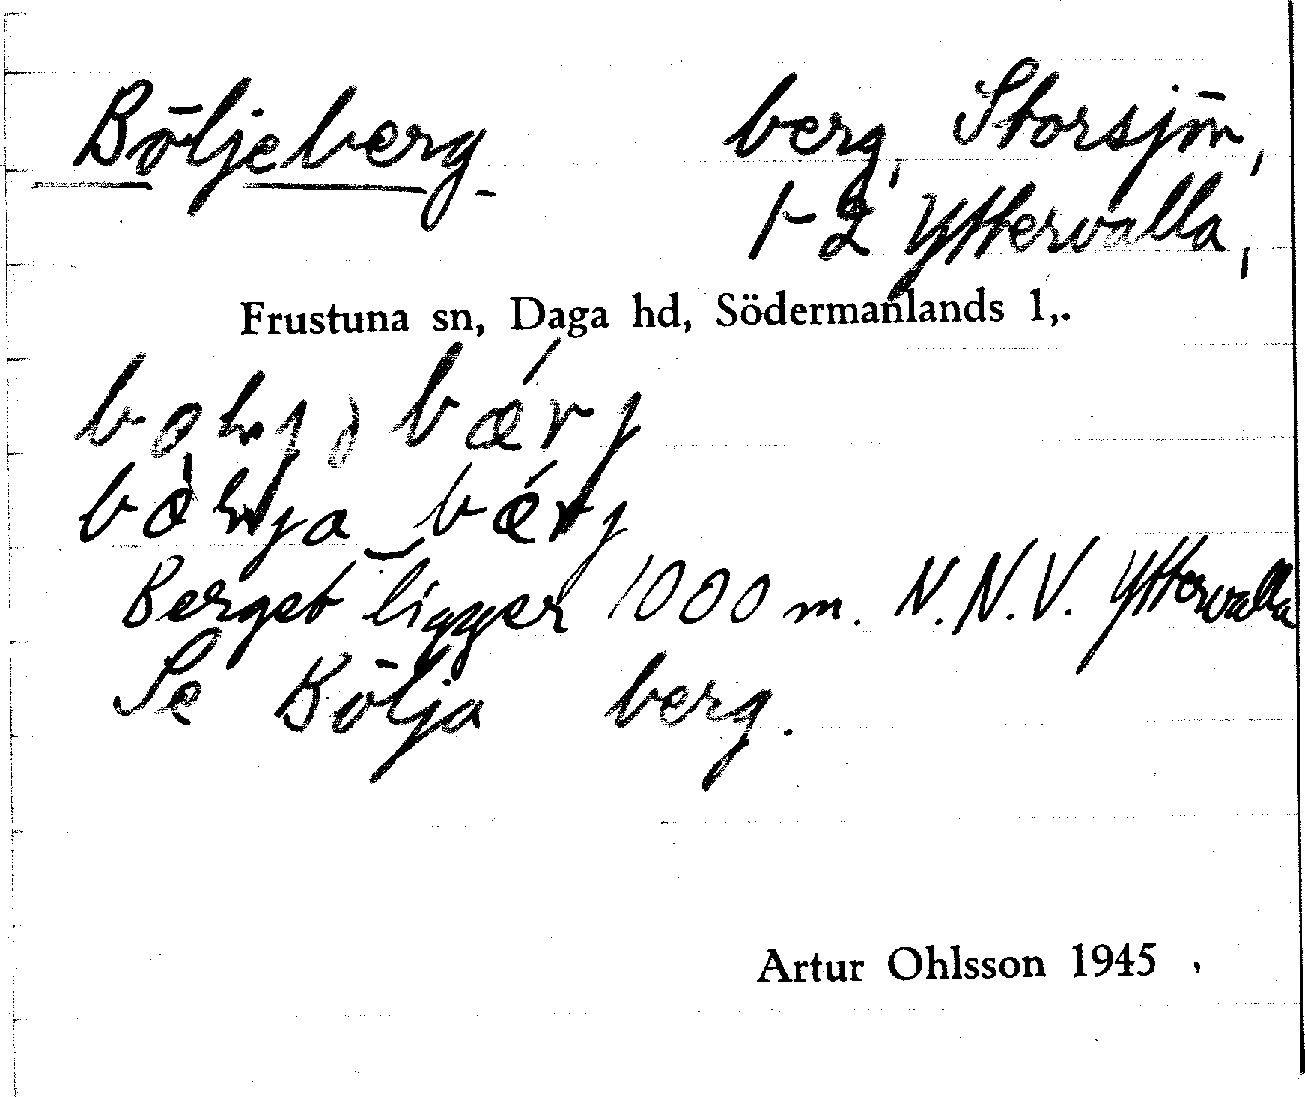 Böljeberg berg, Storsjön,
1-2 Yttervalla,
Frustuna sn, Daga hd, Södermanlands l,.
Berget ligger 1000 m. N.N.V. Yttervalla
Se Bölja berg.
Artur Ohlsson 1945